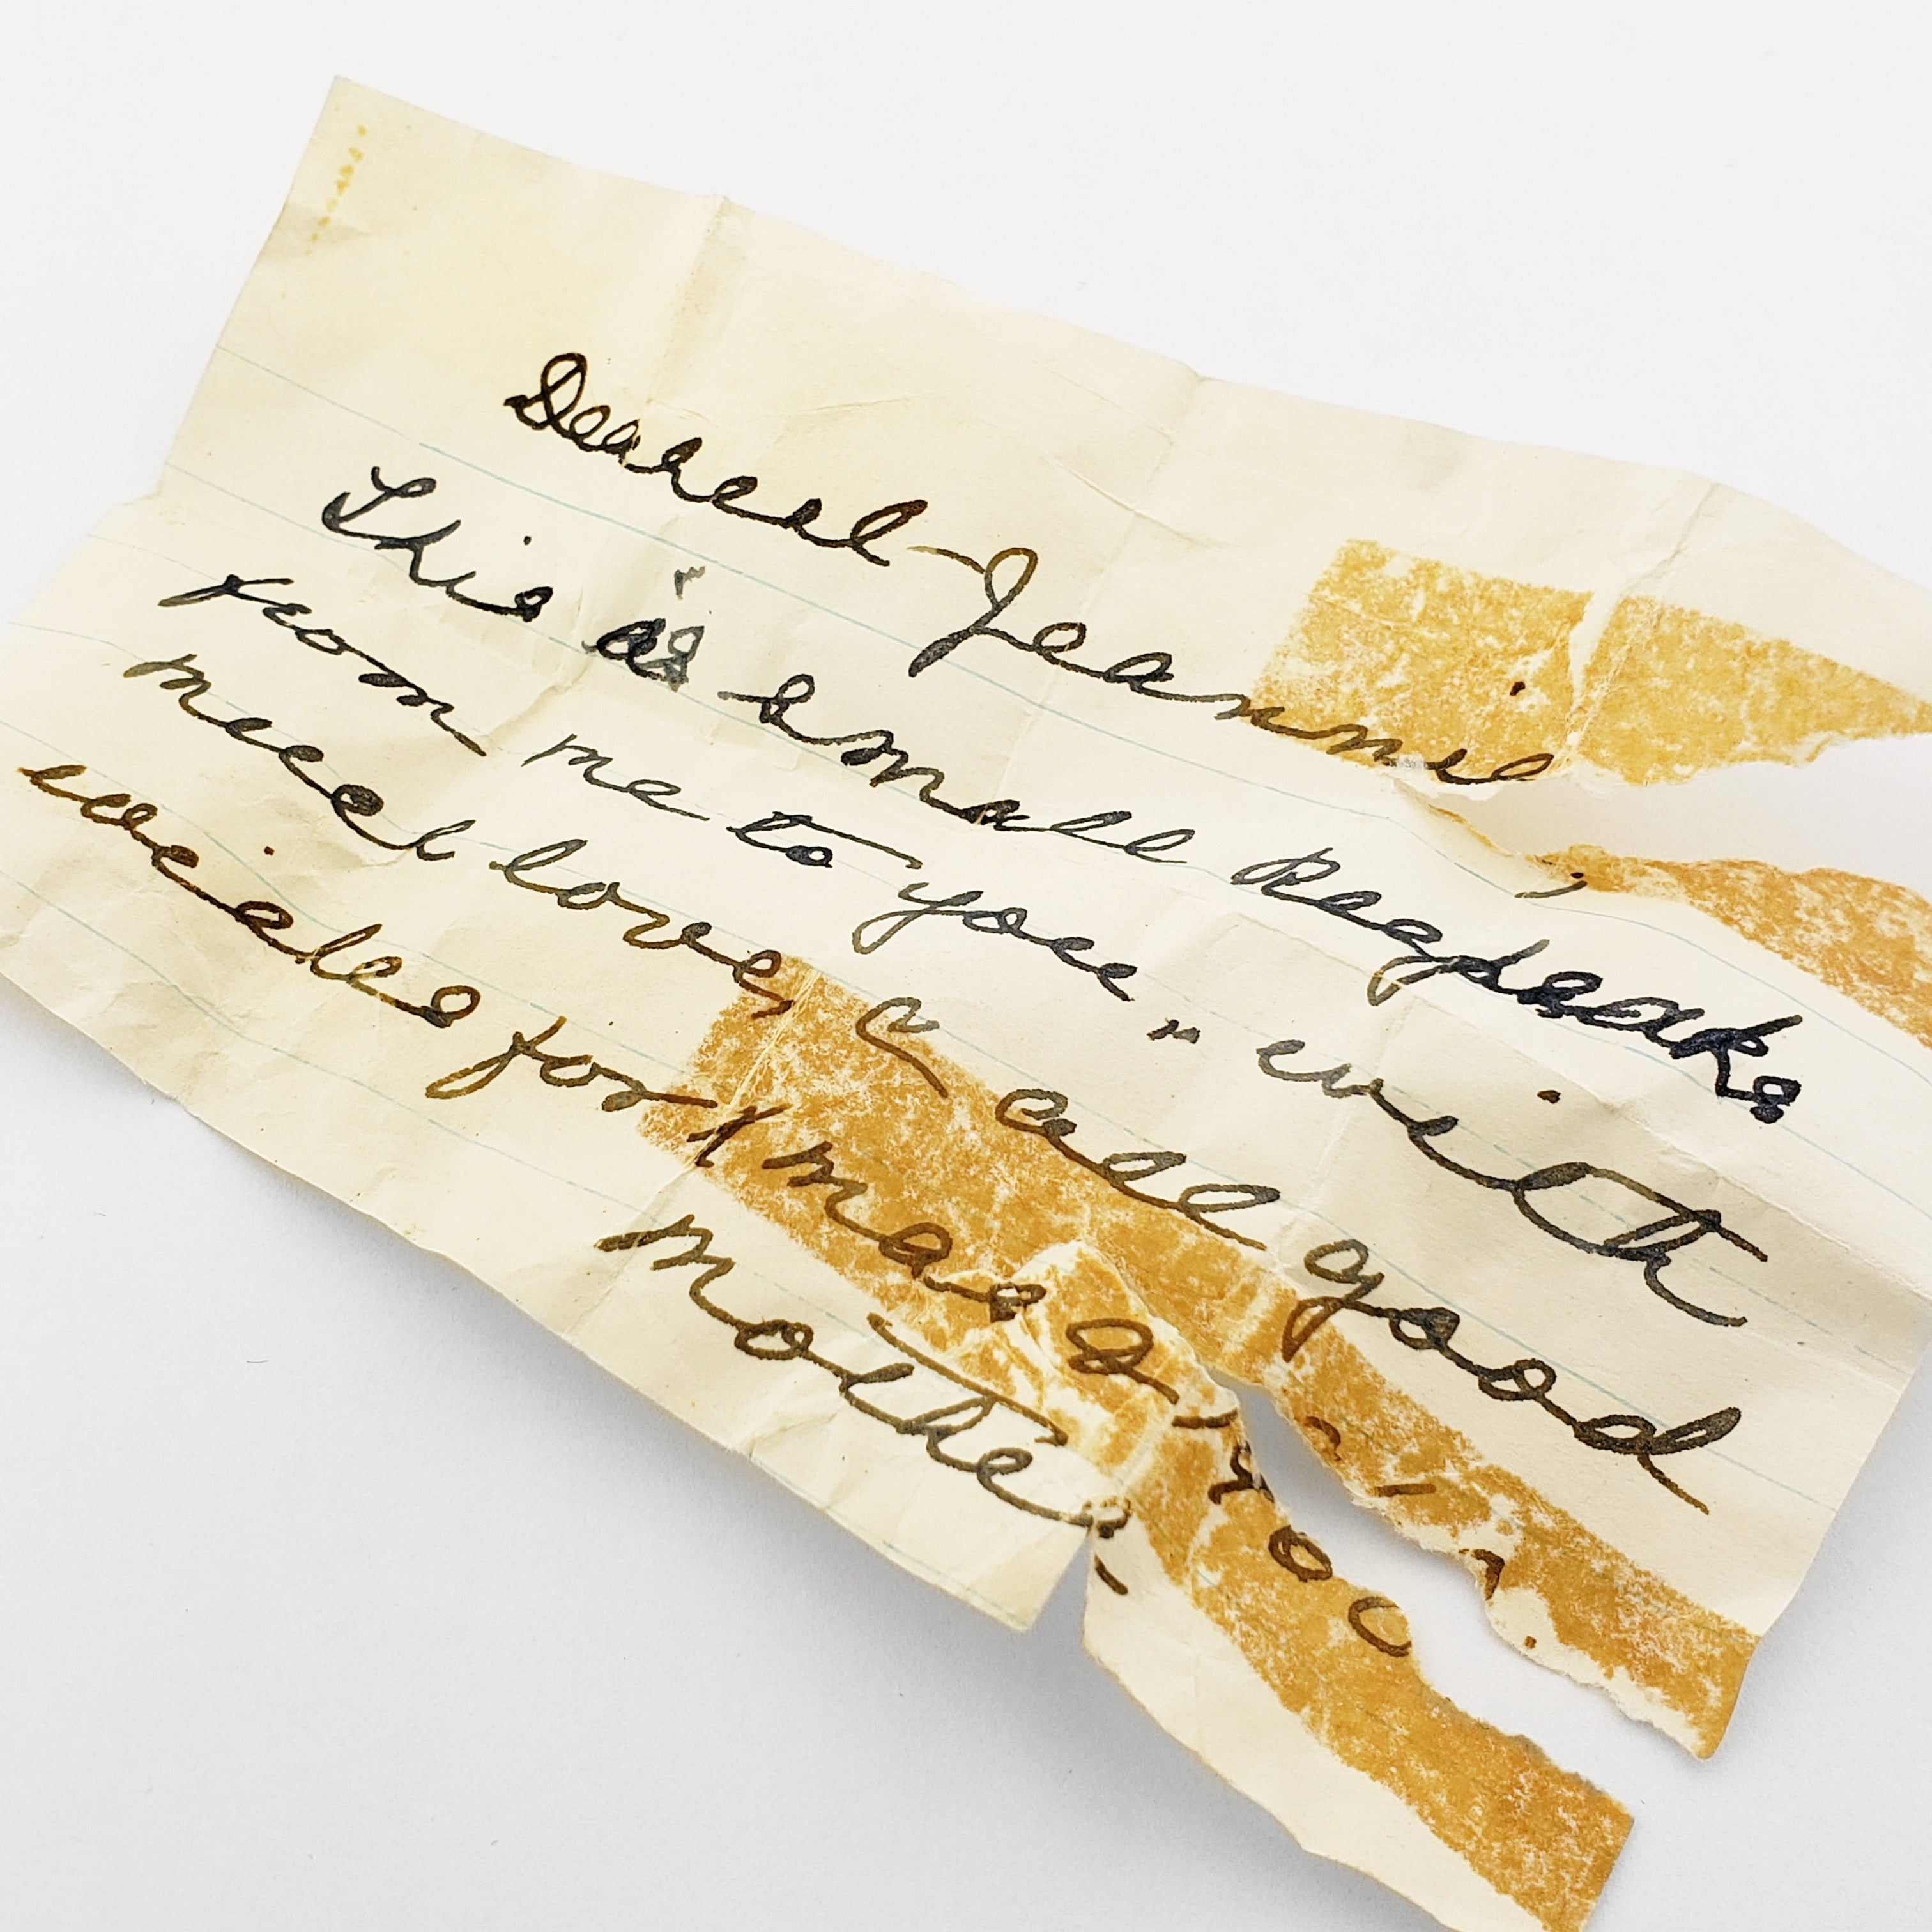 Dearest Jeannie,
This is small Keepsake
from me to you - with
much love, & all good
wishes for Xmas &
Mother